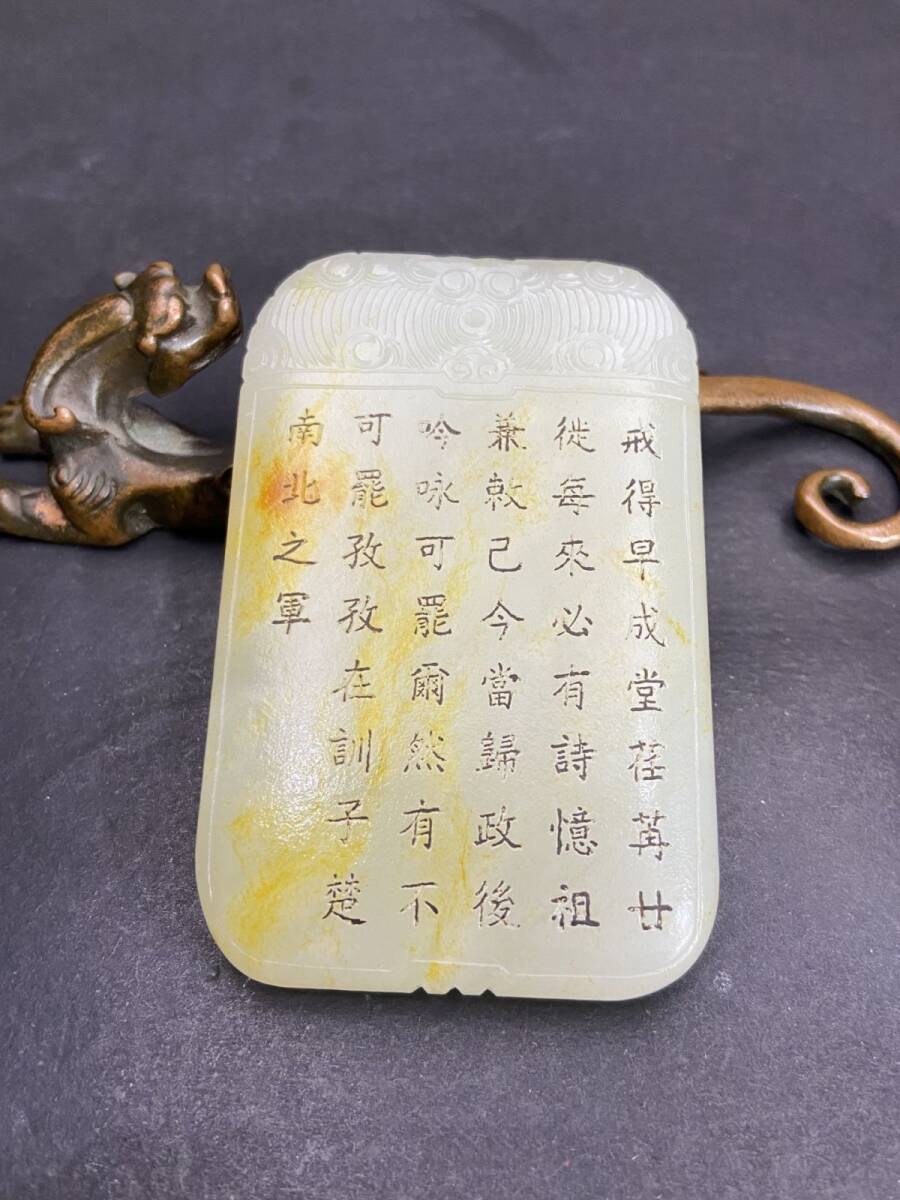 戒得早成堂荏苒廿
徙每來必有詩憶祖
兼敕己今當歸政後
吟咏可罷爾然有不
可罷孜孜在訓子楚
南北之軍